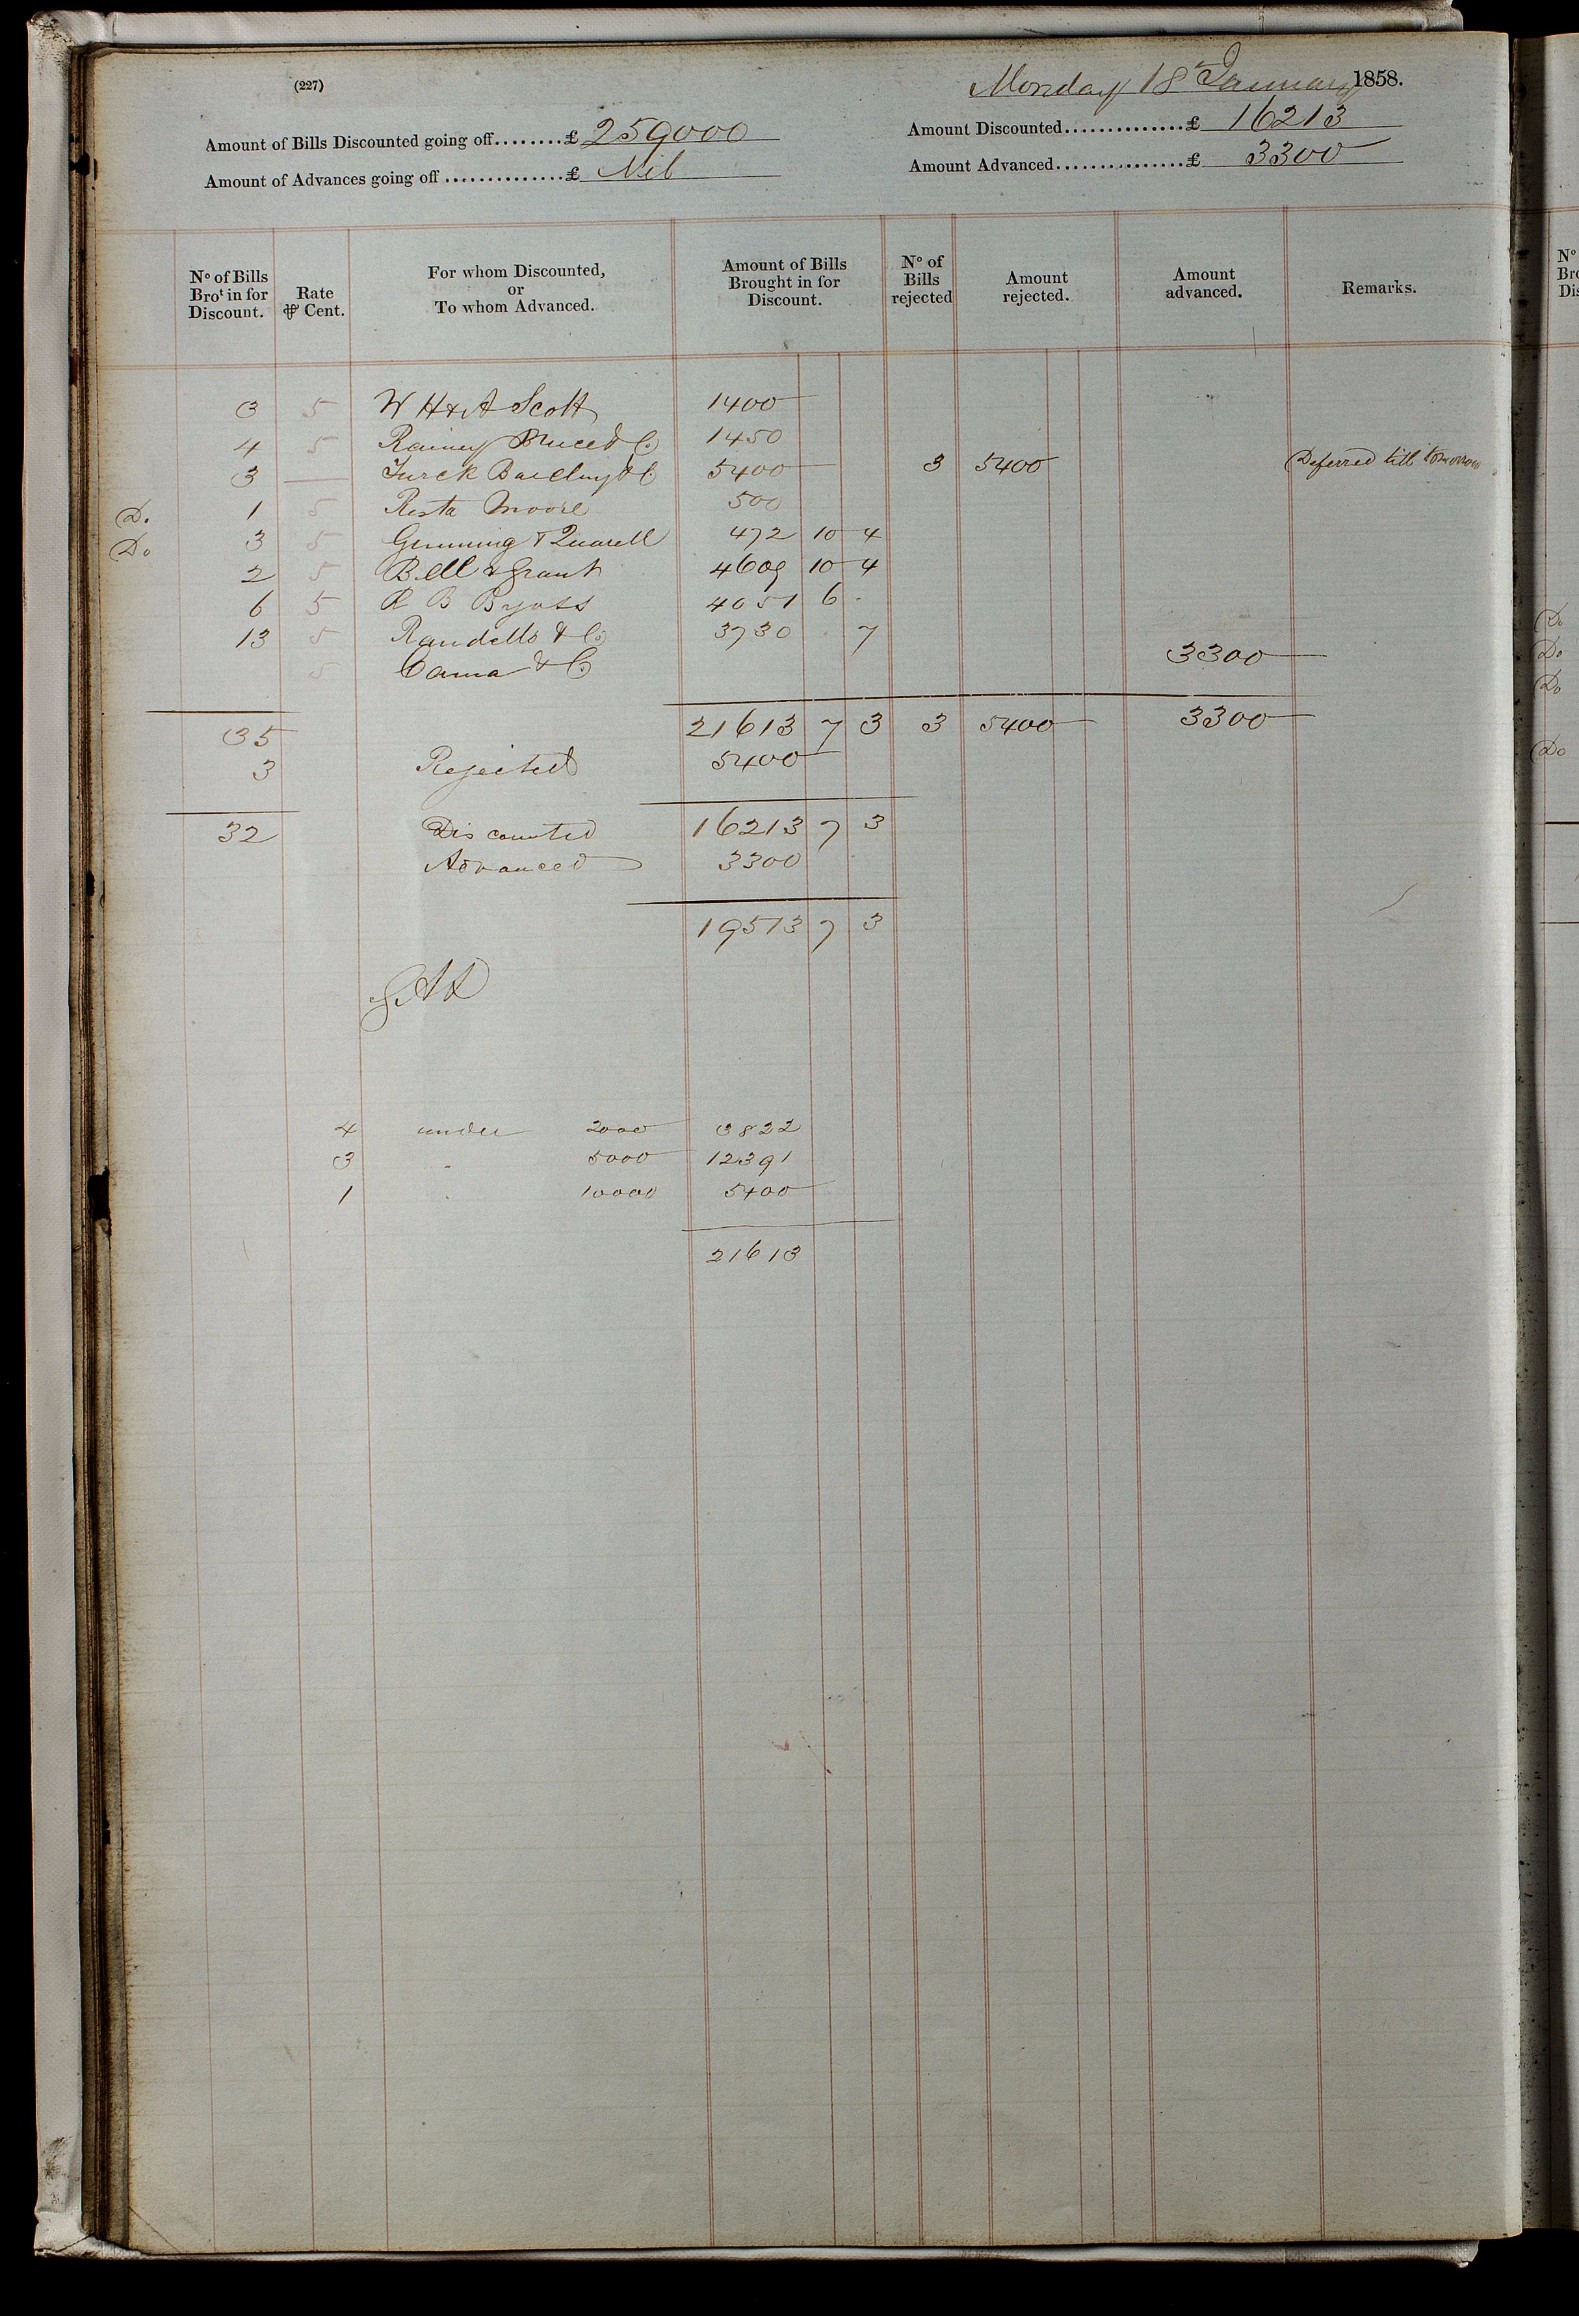 (227)
Monday 18 January 1858.
Amount of Bills Discounted going off........£ 259000
Amount Discounted..............£ 16213
Amount of Advances going off..............£ Nil
Amount Advanced...............£ 3300
No of Bills Brot in for Discount. Rate ⅌ Cent. For whom Discounted, or To whom Advanced. Amount of Bills Brought in for Discount. No of Bills rejected Amount rejected. Amount advanced. Remarks.
3 5 W H & A Scott 1400
4 5 Rainey Bruce & Co 1450
3 — Turck Barclay & Co 5400 3 5400 Deferred till tomorrow
Do 1 5 Resta Moore 500
Do 3 5 & 472 10 4
2 5 Bell & Grant 4609 10 4
6 5 R B Byass 4051 6 -
13 5 Randells & Co 3730 . 7
5 Cama & Co 3300
35 21613 7 3 3 5400 3300
3 Rejected 5400
32 Discounted 16213 7 3
Advanced 3300
19513 7 3
4 under 2000 3822
3 - 5000 12391
1 . 10000 5400
21613
No
Bro
Dis
Do
Do
Do
Do